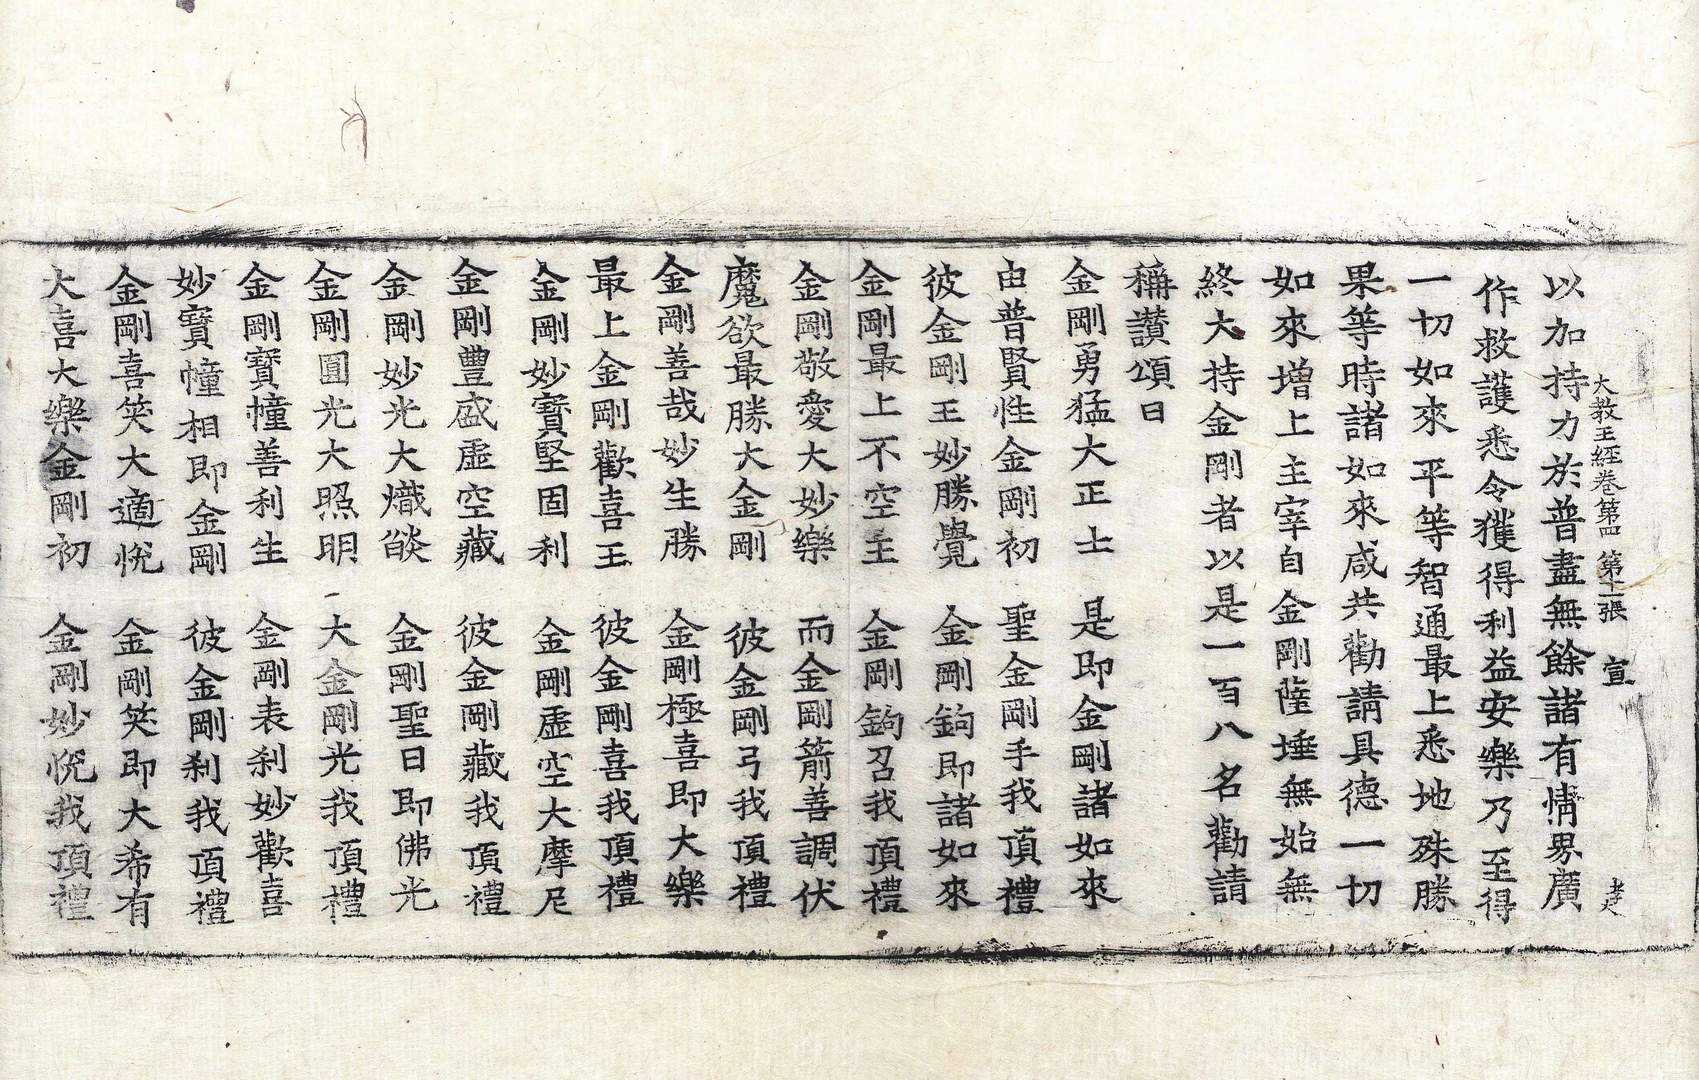 大教王經卷第四 第十一張 宣
以加持力於普盡無餘諸有情界廣
作救護悉令獲得利益安樂乃至得
一切如來平等智通最上悉地殊勝
果等時諸如來咸共勸請具德一切
如來增上主宰自金剛薩埵無始無
終大持金剛者以是一百八名勸請
稱讚頌曰
金剛勇猛大正士 是即金剛諸如來
由普賢性金剛初 聖金剛手我頂禮
彼金剛王妙勝覺 金剛鉤即諸如來
金剛最上不空王 金剛鉤召我頂禮
金剛敬愛大妙樂 而金剛箭善調伏
魔欲最勝大金剛 彼金剛弓我頂禮
金剛善哉妙生勝 金剛極喜即大樂
最上金剛歡喜王 彼金剛喜我頂禮
金剛妙寶堅固利 金剛虛空大摩尼
金剛豐盛虛空藏 彼金剛藏我頂禮
金剛妙光大熾燄 金剛聖日即佛光
金剛圓光大照明 大金剛光我頂禮
金剛寶幢善利生 金剛表剎妙歡喜
妙寶幢相即金剛 彼金剛剎我頂禮
金剛喜笑大適悅 金剛笑即大希有
大喜大樂金剛初 金剛妙悅我頂禮